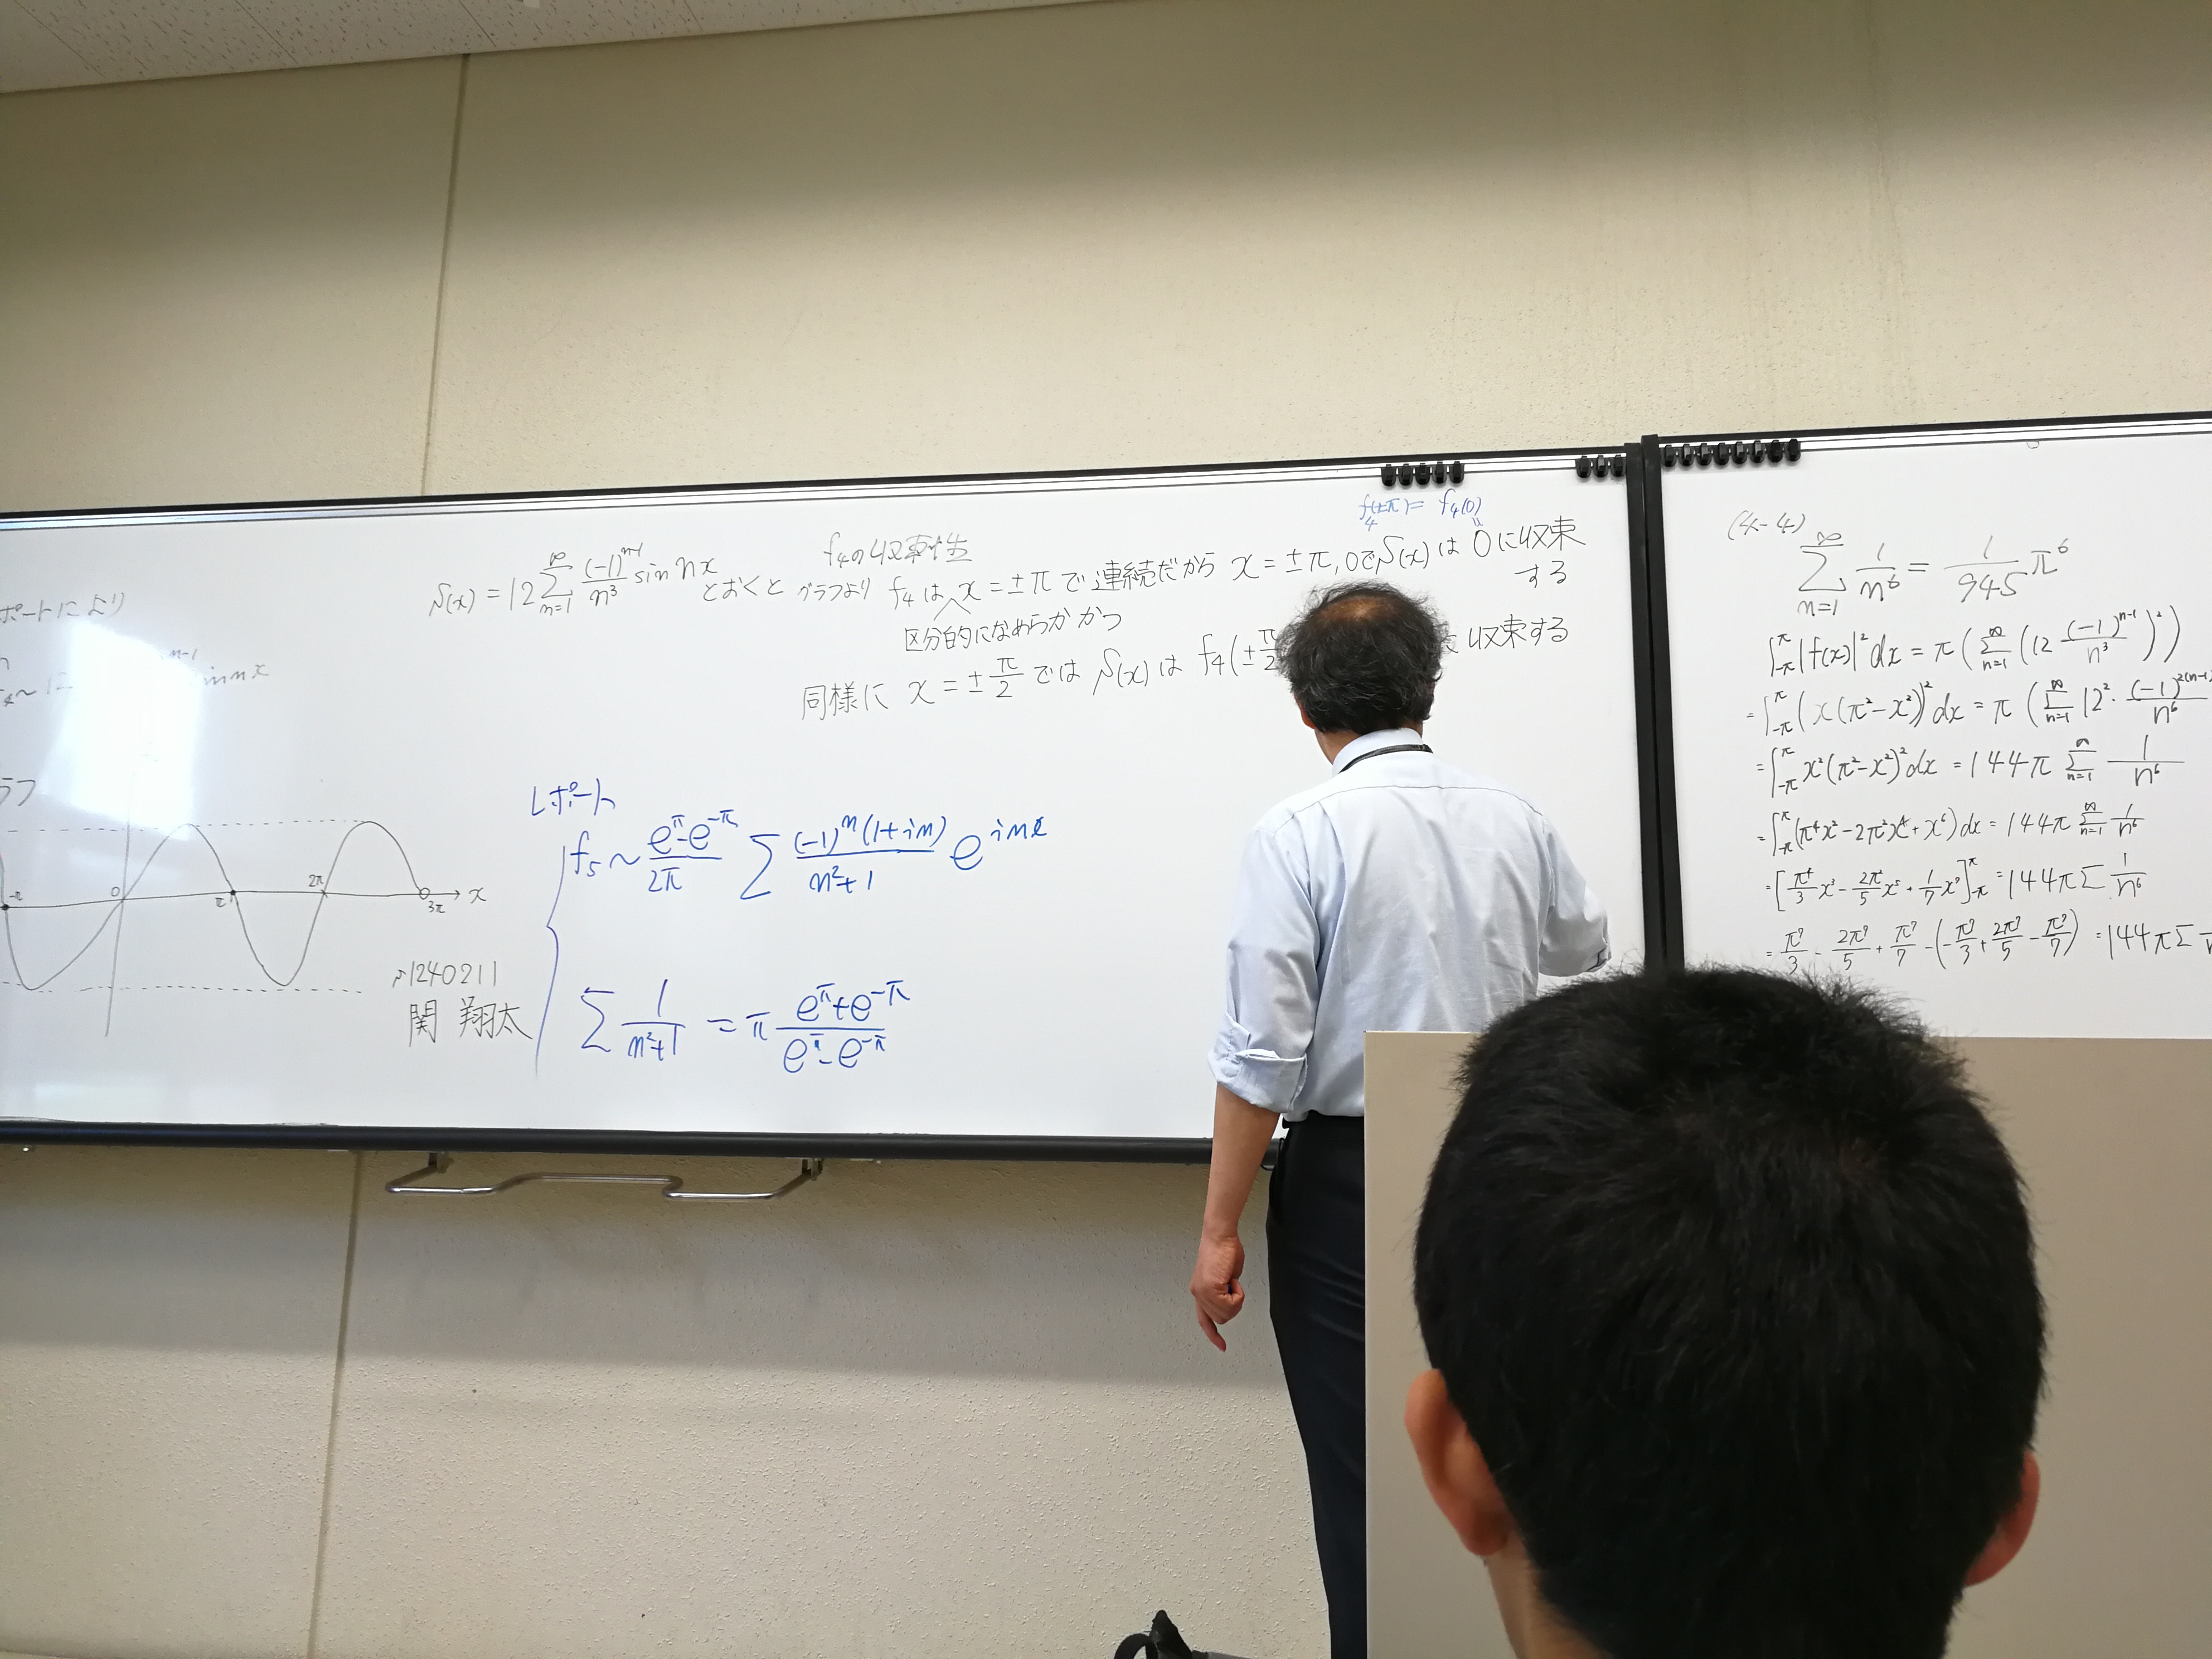 ポートにより
~12 n-1 sin nx
ラフ
-π 0 π 2π 3π x
1240211
関 翔太
S(x) = 12 ∑_{n=1}^{∞} (-1)^{n-1}/n³ sin nx とおくと
f₄の収束性
グラフより f₄は x = ±π で連続だから x = ±π, 0でS(x)は 0に収束
する
f₄(±π) = f₄(0)
区分的になめらか かつ
同様に x = ±π/2 では S(x) は f₄(±π/2 収束する
レポート
f₅ ~ (e^π - e^{-π})/2π ∑ (-1)^n(1+in)/(n²+1) e^{inx}
∑ 1/(n²+1) = π (e^π + e^{-π})/(e^π - e^{-π})
(4-4)
∑_{n=1}^{∞} 1/n⁶ = 1/945 π⁶
∫_{-π}^{π} |f(x)|² dx = π (∑_{n=1}^{∞} (12 (-1)^{n-1}/n³)²)
= ∫_{-π}^{π} (x(π²-x²))² dx = π (∑_{n=1}^{∞} 12² · (-1)^{2(n-1)}/n⁶
= ∫_{-π}^{π} x²(π²-x²)² dx = 144π ∑_{n=1}^{∞} 1/n⁶
= ∫_{-π}^{π} (π⁴x² - 2π²x⁴ + x⁶) dx = 144π ∑_{n=1}^{∞} 1/n⁶
= [π⁴/3 x³ - 2π²/5 x⁵ + 1/7 x⁷]_{-π}^{π} = 144π ∑ 1/n⁶
= π⁷/3 - 2π⁷/5 + π⁷/7 - (-π⁷/3 + 2π⁷/5 - π⁷/7) = 144π ∑